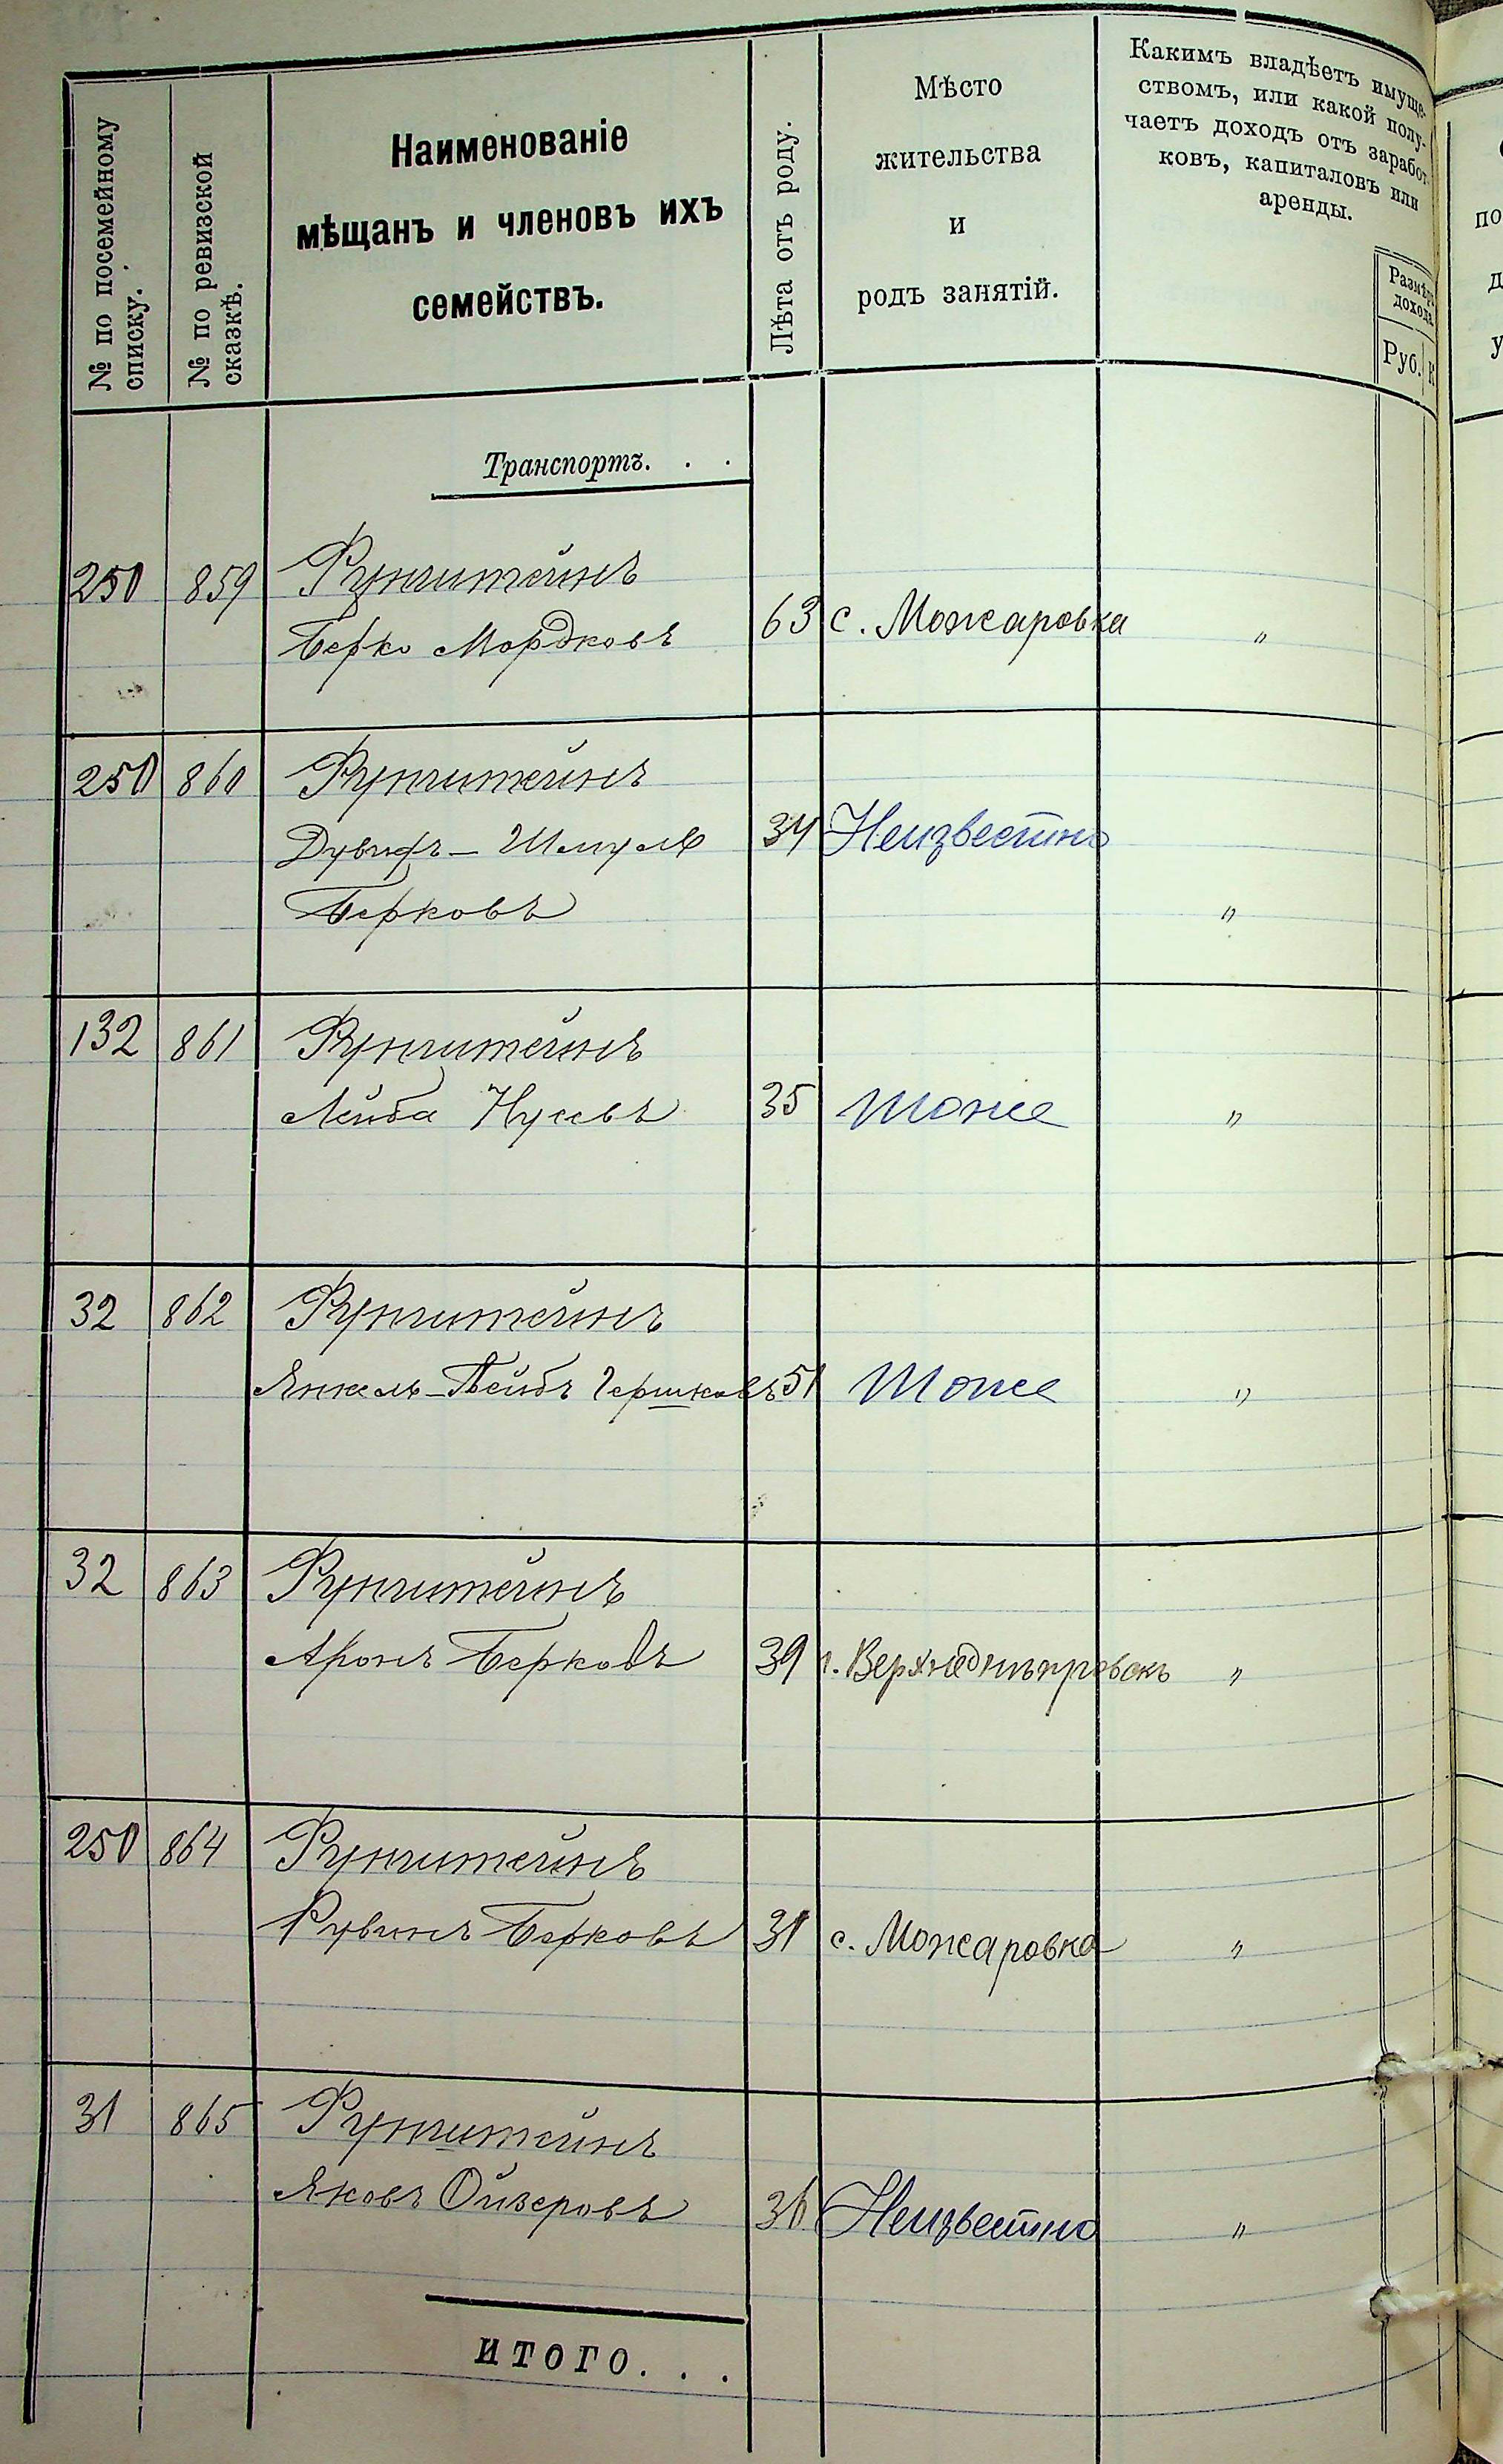 № по посемейному
списку.
№ по ревизской
сказкѣ.
Наименованіе
мѣщанъ и членовъ ихъ
семействъ.
Лѣта отъ роду.
Мѣсто
жительства
и
родъ занятій.
Какимъ владѣетъ имуще-
ствомъ, или какой полу-
чаетъ доходъ отъ заработ-
ковъ, капиталовъ или
аренды.
Размѣръ
дохода
Руб. К
Транспортъ. . .
250 859 Рунштейнъ
Берко Мордковъ 63 с. Можаровка "
250 860 Рунштейнъ
Дувидъ-Шмуль 34 Неизвестно
Берковъ "
132 861 Рунштейнъ
Лейба Нусевъ 35 Тоже "
32 862 Рунштейнъ
Янкель-Лейбъ Гершковъ 51 Тоже "
32 863 Рунштейнъ
Аронъ Берковъ 39 г. Верхнеднѣпровскъ "
250 864 Рунштейнъ
Рувинъ Берковъ 31 с. Можаровка "
31 865 Рунштейнъ
Яковъ Ойзеровъ 36 Неизвестно "
ИТОГО. . .